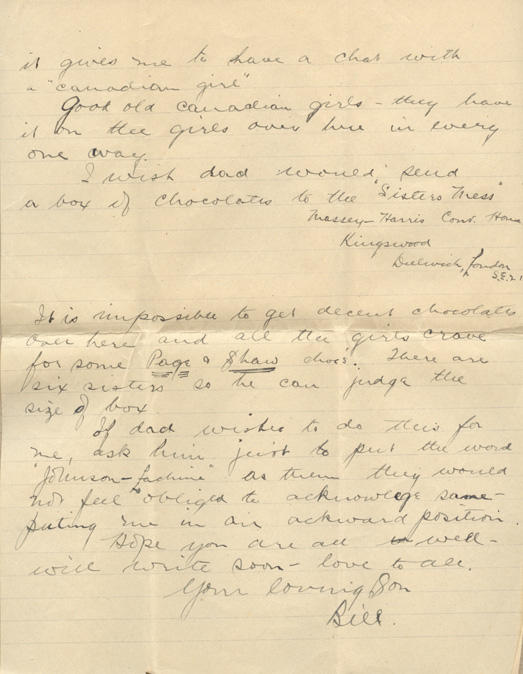 it gives me to have a chat with
a "canadian girl"
Good old canadian girls - they have
it on the girls over here in every
one way.
I wish dad would send
a box of chocolates to the "Sisters Mess"
Massey-Harris Conv. Home
Kingswood
Dulwich, London
S.E.21
It is impossible to get decent chocolates
over here and all the girls crave
for some Page & Shaw choc's. There are
six sisters so he can judge the
size of box
If dad wishes to do this for
me, ask him just to put the word
"Johnson-Lachine" as then they would
not feel "obliged to acknowlege same-
puting me in an ackward position.
Hope you are all well-
will write soon - love to all.
Your loving Son
Bill.